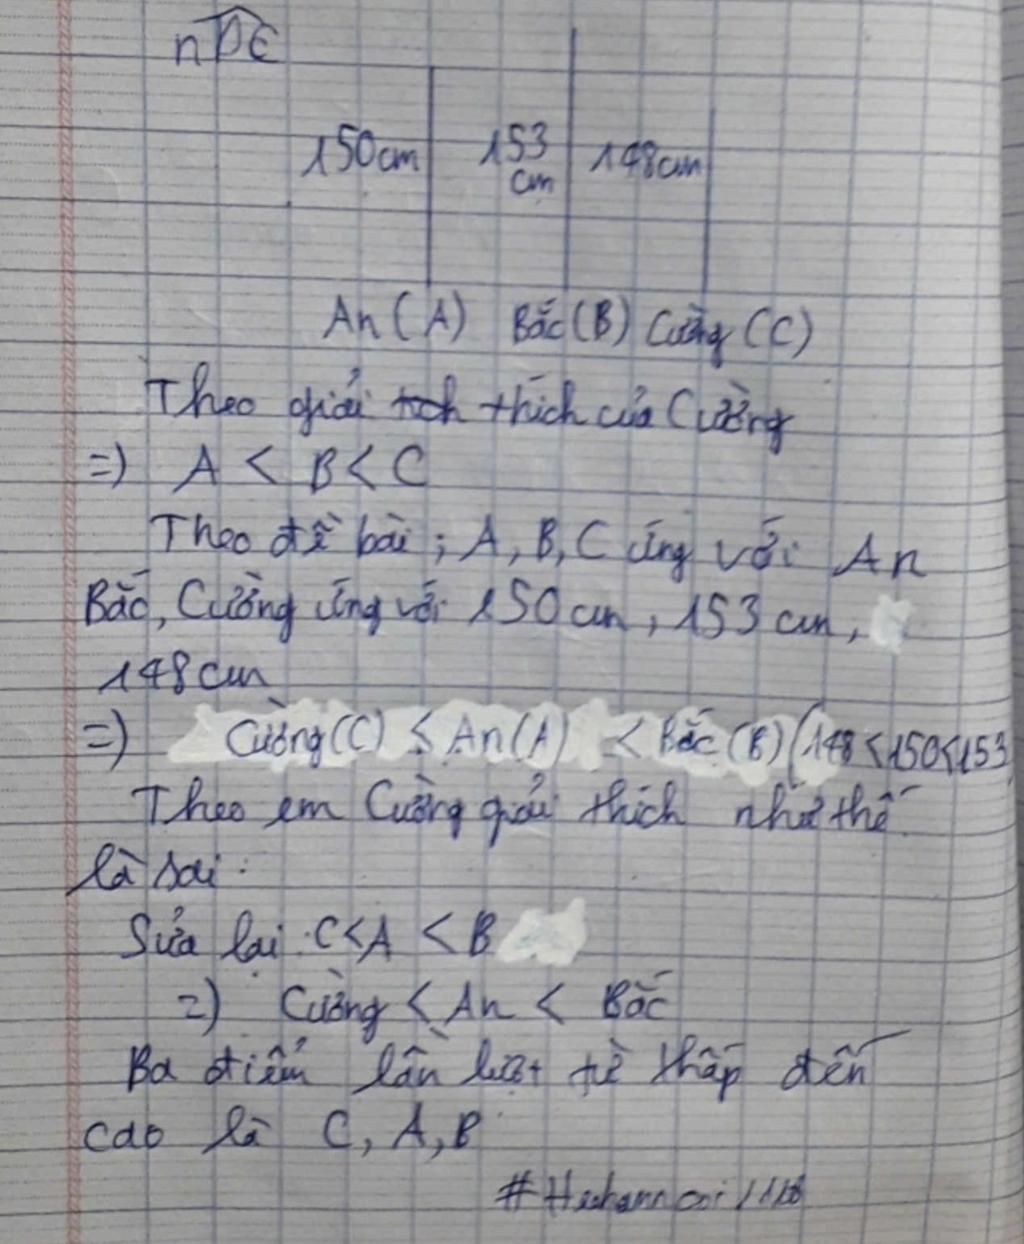 150cm 153 148cm
cm
An (A) Bắc (B) Cường (C)
Theo giải thích của Cường
=) A < B < C
Theo đề bài ; A, B, C ứng với An
Bắc, Cường ứng với 150 cm, 153 cm,
148 cm
=) Cường (C) < An (A) < Bắc (B) (148 < 150 < 153
Theo em Cường giải thích như thế
là sai.
Sửa lại : C < A < B
=) Cường < An < Bắc
Ba điểm lần lượt từ thấp đến
cao là C, A, B